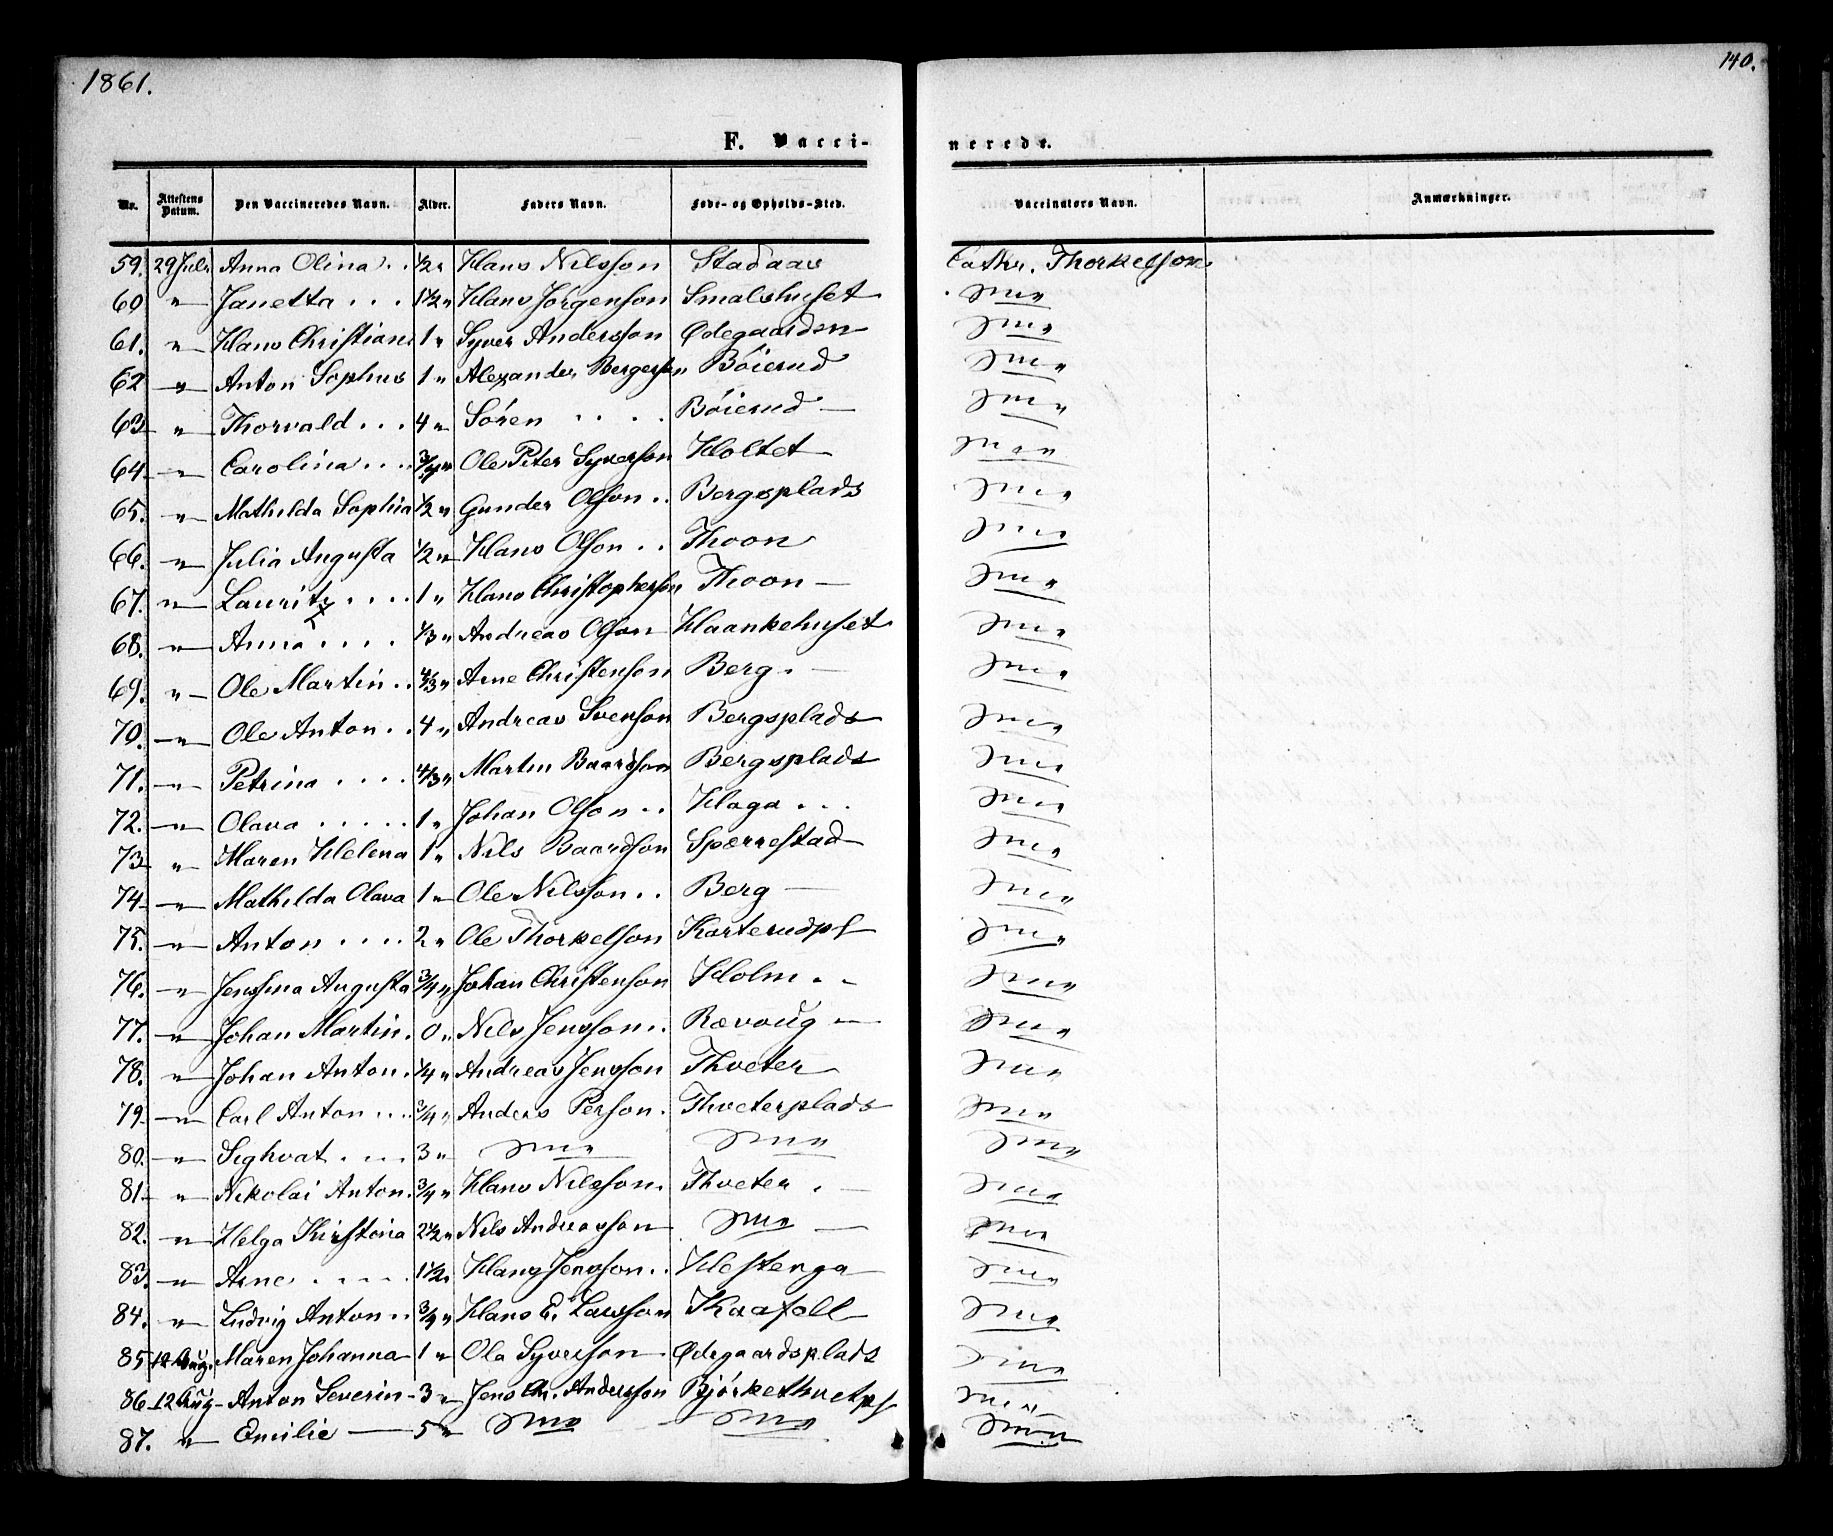 1861.
140.
F. Vacci-
nerede.
Nr. Attestens Datum. Den Vaccineredes Navn. Alder. Faders Navn. Føde- og Opholds-Sted. Vaccinators Navn. Anmærkninger.
59. 29 Juli Anna Olina . . 1/2 " Hans Nilsson Stadaas Cathr. Thorkelson
60 " Janetta . . . 1 1/2 " Hans Jørgenson Smalshuset
61. " Hans Christian 1 " Syver Andersson Ødegaarden
62 " Anton Sophus 1 " Alexander Bergerson Bøierud
63 " Thorvald . . . 4 " Søren . . . . Bøierud
64 " Carolina . . . 3/4 " Ole Peter Syverson Holtet
65. " Mathilda Sophia 1/2 " Gunder Olson . . Bergsplads
66. " Julia Augusta 1/2 " Hans Olson . . Thoon
67. " Lauritz . . . . 1 " Hans Christopherson Thoon
68. " Anna . . . . 1/3 " Andreas Olson Haankehuset
69. " Ole Martin . . 4/3 " Arne Christenson Berg.
70. " Ole Anton . . 4 " Andreas Svenson Bergsplads
71. " Petrina . . . . 4/3 " Martin Baardson Bergsplads
72. " Olava . . . . . 1 " Johan Olson . . Haga . . .
73 " Maren Helena 1 " Nils Baardson Spærrestad
74 " Mathilda Olava 1 " Ole Nilsson . . Berg
75. " Anton . . . . 2 " Ole Thorkelson Korterudpl
76. " Jensina Augusta 3/4 " Johan Christenson Holm . .
77. " Johan Martin . 0 " Nils Jensson . . Rævoug
78. " Johan Anton . 1/4 " Andreas Jensson Thveter
79 " Carl Anton . . . 3/4 " Anders Person . Thveterplads
80. " Sighvat . . . . 3 "
81. " Nikolai Anton . 3/4 " Hans Nilsson . Thveter .
82. " Helga Kirstina 2 1/2 " Nils Andreasson
83. " Arne . . . . . 1 1/2 " Hans Jensson . . Hestenga
84. " Ludvig Anton . . 3/4 " Hans E. Larsson Kraafoll
85 12 Aug. Maren Johanna 1 " Ola Syverson . Ødegaardsplads
86 12 Aug Anton Severin 3 " Jens Chr. Andersson Bjørkethvetpl
87. " Emilie 5 "